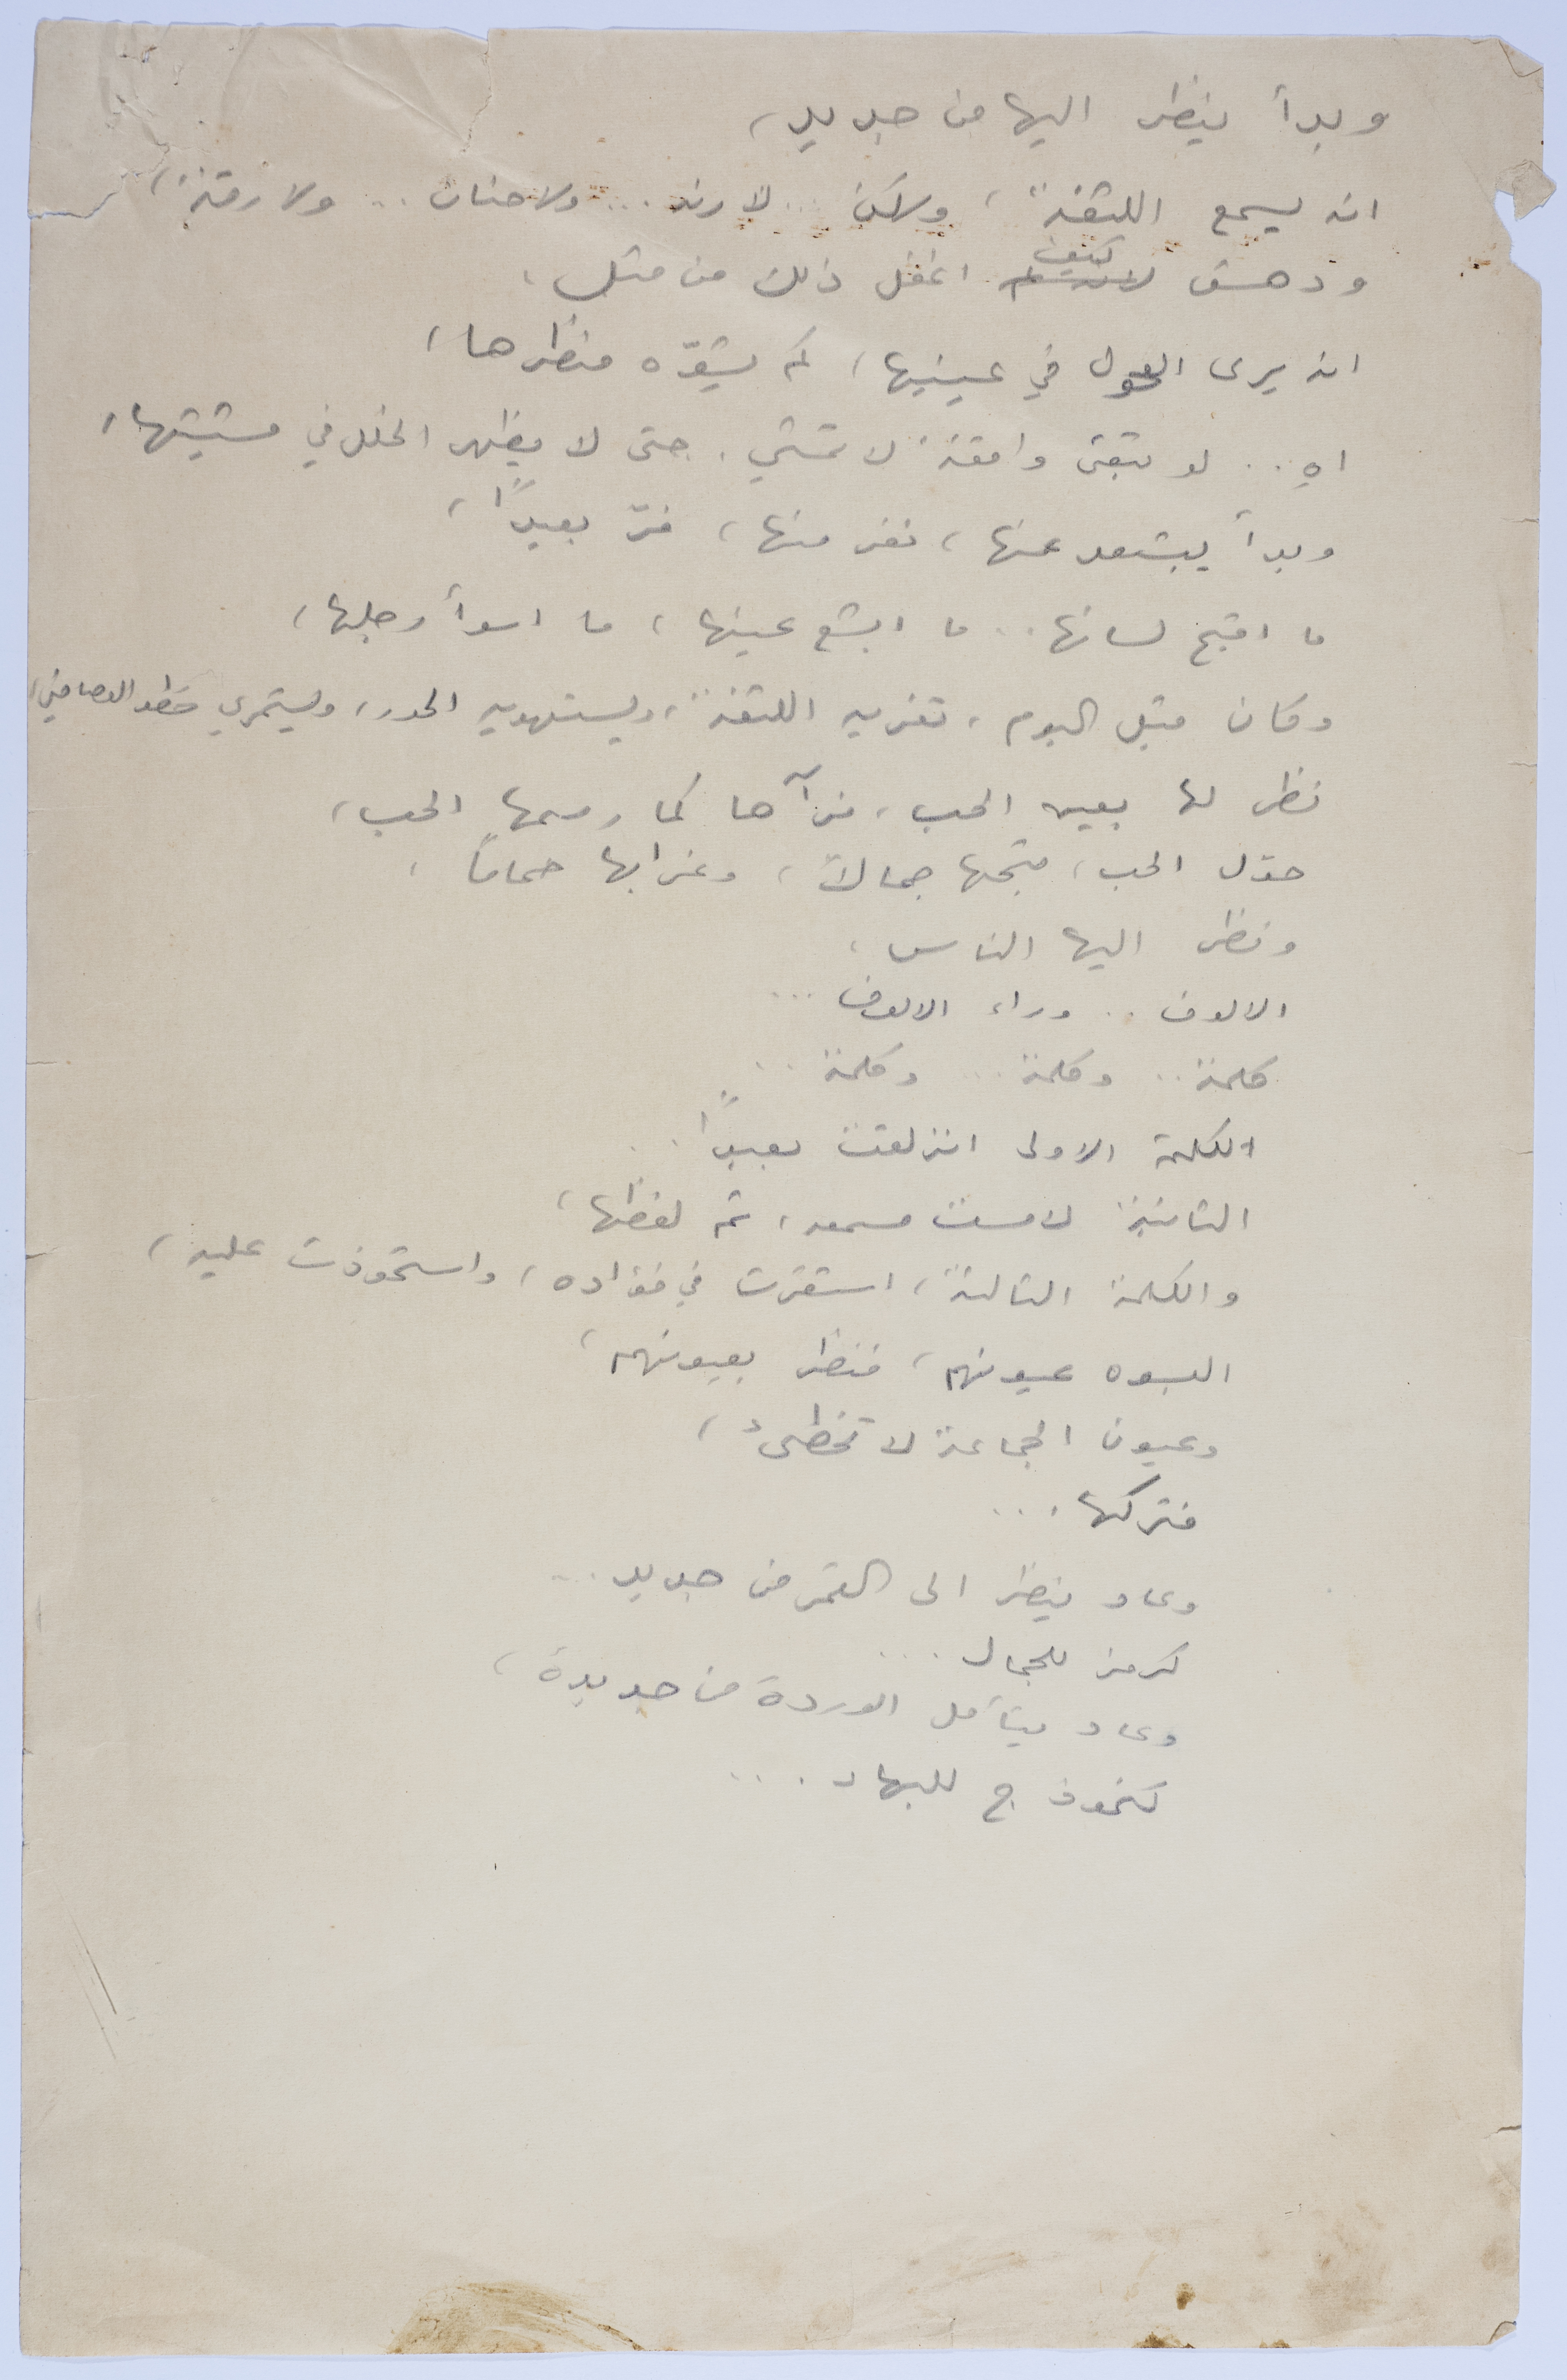 وبدأ ينظر اليها من جديد،
انه يسمع اللثغة، ولكن .. لا رنه ... ولا حنان .. ولا رقة،
ودهش كيف اغفل ذلك من قبل،
انه يرى الحول في عينيها، كم يشوّه منظرها،
اه .. لو تبقى واقفة لا تمشي. حتى لا يظهر الخلل في مشيتها،
وبدأ يبتعد عنها، نفر منها، فرّ بعيداً،
ما اقبح لسانها .. ما ابشع عينها، ما اسوأ رجلها،
وكان قبل اليوم، تغريه اللثغة، ويستهويه الحور، ويستمري خطو العصافير،
نظر لها بعين الحب، فرآها كما رسمها الحب،
حوّل الحب، قبحها جمالاً، وغرابها حماماً،
ونظر اليها الناس،
الالوف .. وراء الالوف ...
كلمة .. وكلمة ... وكلمة ..
الكلمة الاولى انزلقت بعيداً ..
الثانية لامست مسمعه، ثم لفظها،
والكلمة الثالثة، استقرت في فؤاده، واستحوذت عليه،
البسوه عيونهم، فنظر بعيونهم،
وعيون الجماعة لا تخطىء،
فتركها ...
وعاد ينظر الى القمر من جديد ...
كرمز للجمال ...
وعاد يتأمل الوردة من جديدة،
كنموذج للبهاء ...